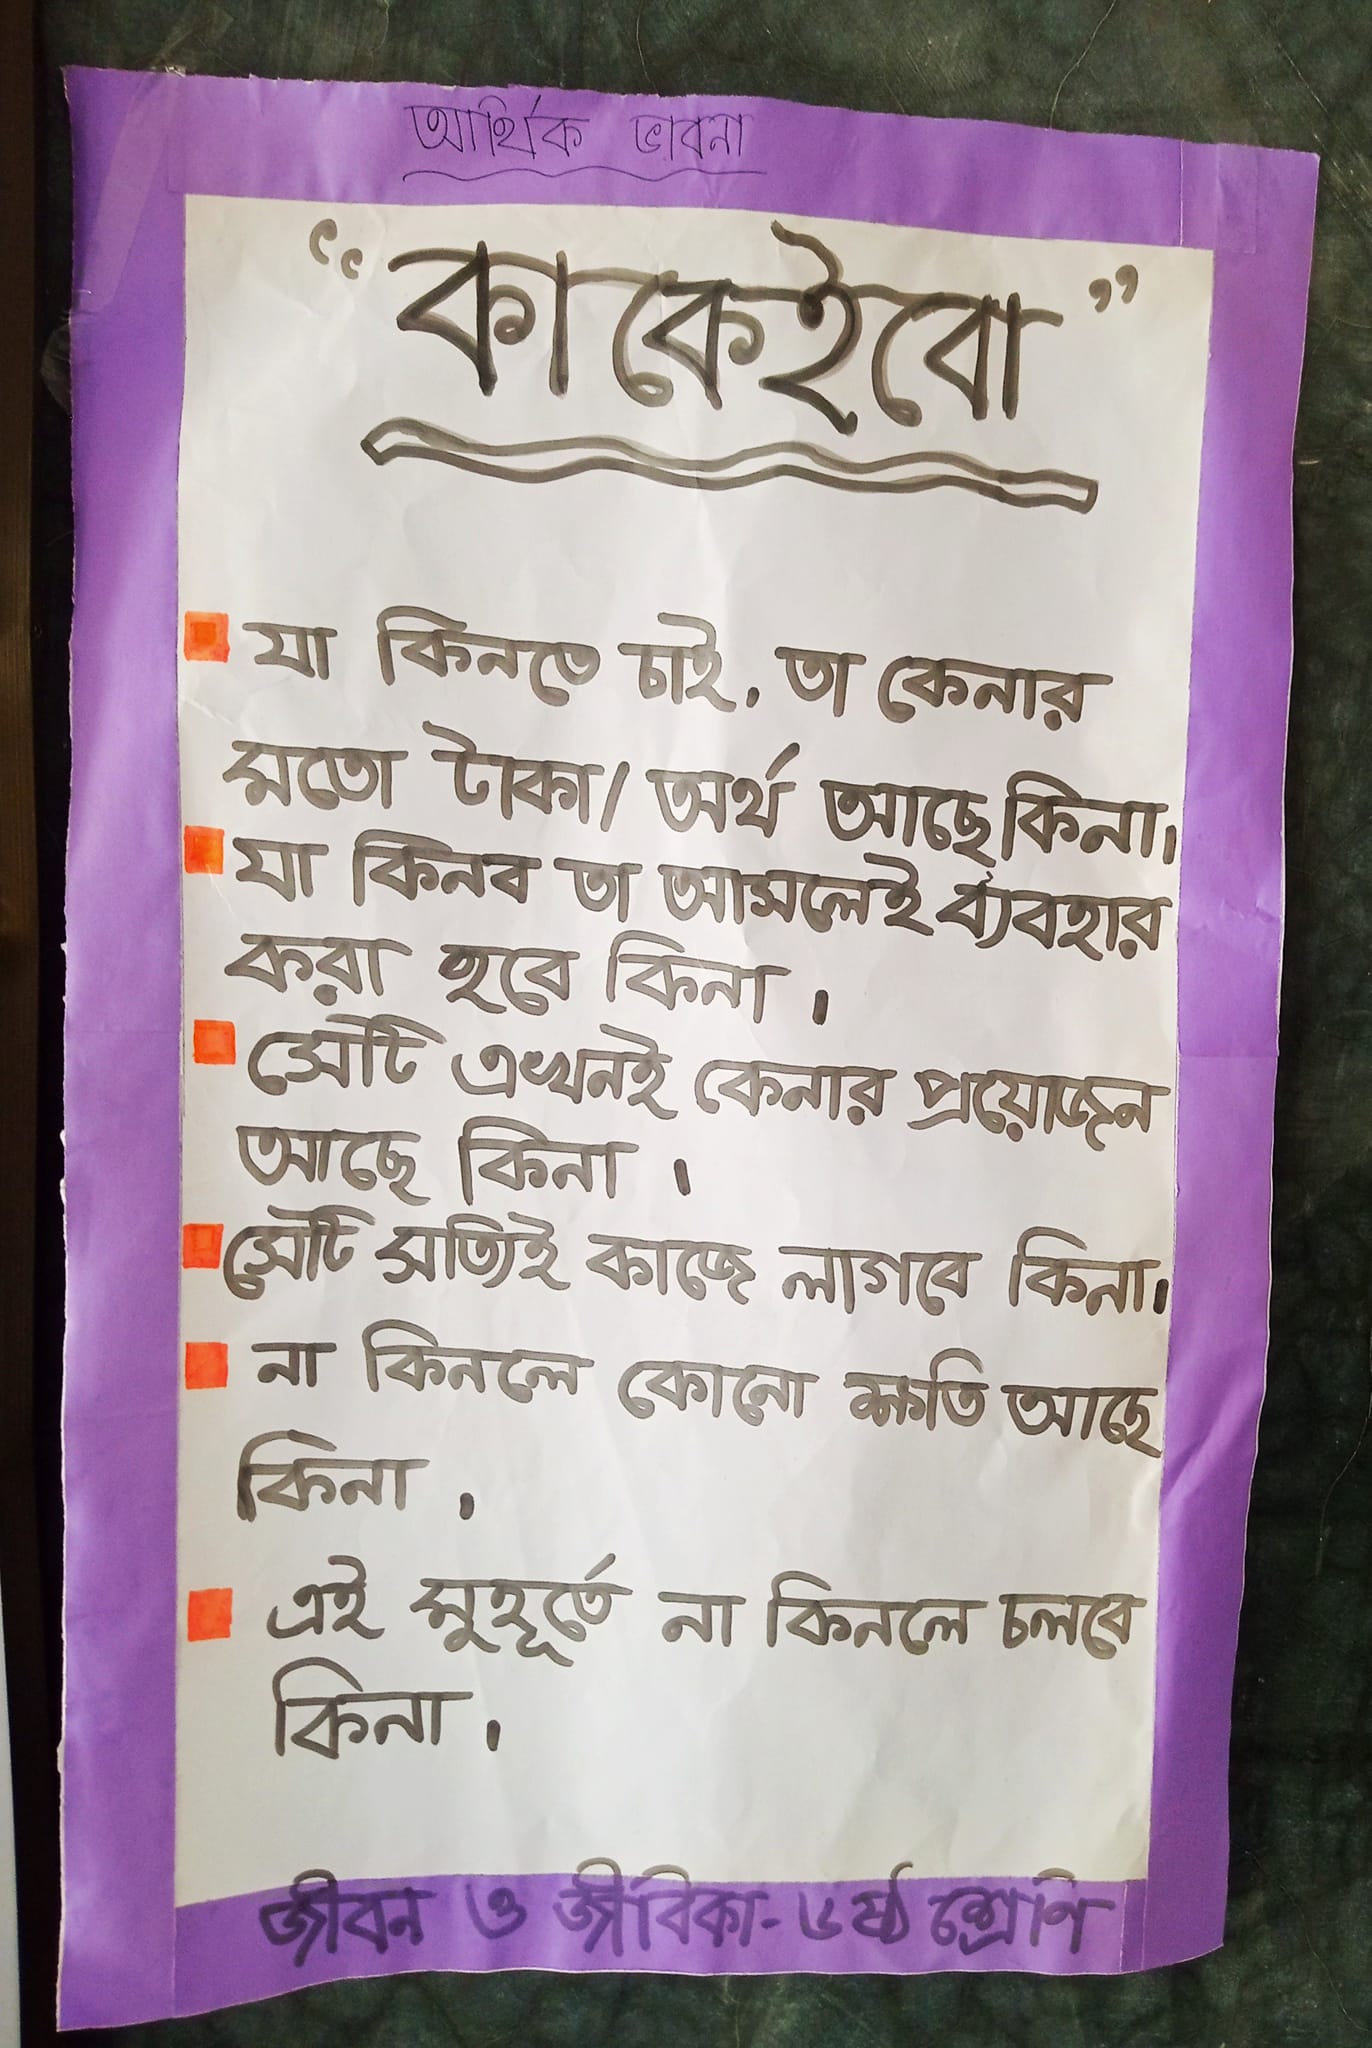 আর্থিক ভাবনা
“কাকেইবো”
যা কিনতে চাই, তা কেনার
মতো টাকা/অর্থ আছে কিনা।
যা কিনব তা আসলেই ব্যবহার
করা হবে কিনা।
সেটি এখনই কেনার প্রয়োজন
আছে কিনা।
সেটি সত্যিই কাজে লাগবে কিনা।
না কিনলে কোনো ক্ষতি আছে
কিনা।
এই মুহূর্তে না কিনলে চলবে
কিনা।
জীবন ও জীবিকা- ৬ষ্ঠ শ্রেণি